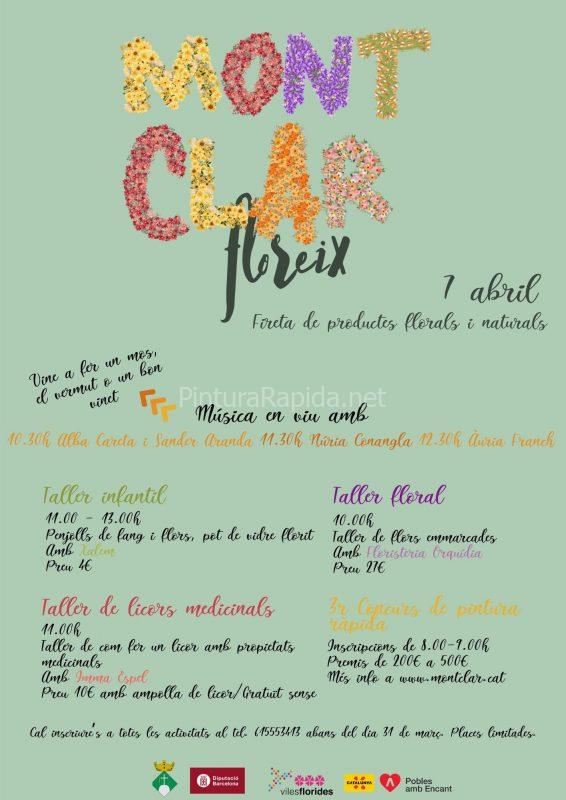 MONT
CLAR
floreix
7 abril
Fireta de productes florals i naturals
Vine a fer un mos,
el vermut o un bon
vinet
PinturaRapida.net
Música en viu amb
10.30h Alba Careta i Sander Aranda 11.30h Núria Conangla 12.30h Àuria Franch
Taller infantil
11.00 - 13.00h
Penjolls de fang i flors, pot de vidre florit
Amb Xalem
Preu 4€
Taller floral
10.00h
Taller de flors emmarcades
Amb Floristeria Orquídia
Preu 27€
Taller de licors medicinals
11.00h
Taller de com fer un licor amb propietats
medicinals
Amb Imma Espel
Preu 10€ amb ampolla de licor/Gratuït sense
3r Concurs de pintura
ràpida
Inscripcions de 8.00-9.00h
Premis de 200€ a 500€
Més info a www.montclar.cat
Cal inscriure's a totes les activitats al tel. 615553413 abans del dia 31 de març. Places limitades.
Diputació
Barcelona
vilesflorides
CATALUNYA
Pobles
amb Encant